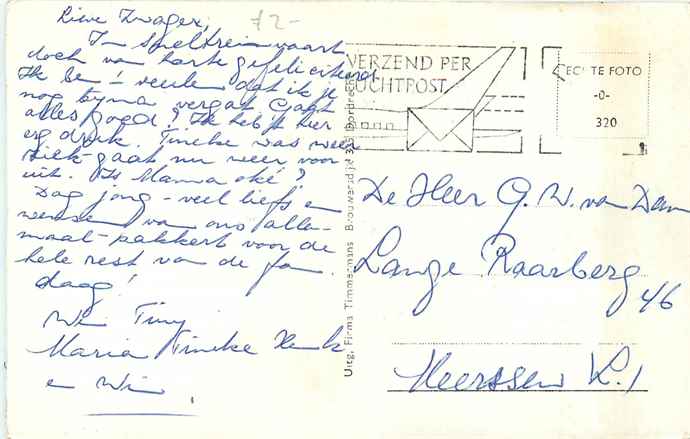 Lieve Zwager, 72-
In sneltreinvaart
doch van harte gefeliciteerd
Ik ben 't - verdu dat ik je
nog byna vergat Gaat
alles goed? Ik heb 't hier
erg druk. Tineke was weer
ziek - gaat nu weer voor
uit. Is Mamma oké?
Dag jong - veel liefs en
wensen van ons alle-
maal - pakkert voor de
hele rest van de fam.
daag!
Wi Tiny
Maria Tineke Henk
en Wi
VERZEND PER
LUCHTPOST
ECHTE FOTO
-0-
320
Uitg. Firma Timmermans Brouwersdijk Dordrecht
De Heer G. W. van Dam
Lange Raarberg
46
Meerssen L.